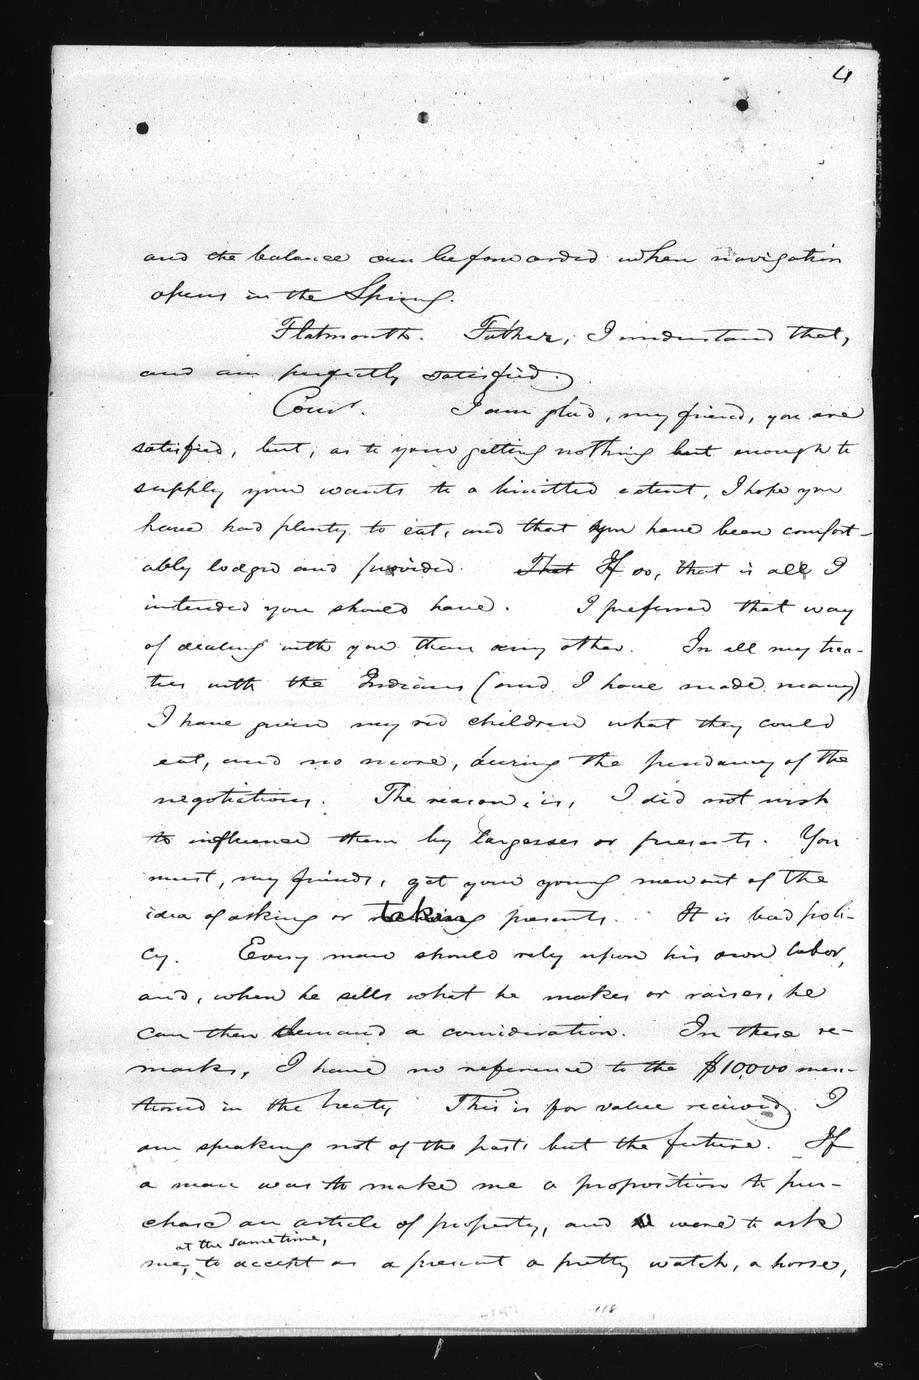 4
and the balance can be forwarded when navigation
opens in the Spring.
Flatmouth. Father, I understand that,
and am perfectly satisfied.
Comr. I am glad, my friend, you are
satisfied, but, as to your getting nothing but enough to
supply your wants to a limitted extent, I hope you
have had plenty to eat, and that you have been comfort-
ably lodged and provided. That If so, that is all I
intended you should have. I preferred that way
of dealing with you than any other. In all my trea-
ties with the Indians (and I have made many)
I have given my red children what they could
eat, and no more, during the pendancy of the
negotiations. The reason is, I did not wish
to influence them by largesses or presents. You
must, my friends, get your young men out of the
idea of asking or taking presents. It is bad poli-
cy. Every man should rely upon his own labor,
and, when he sells what he makes or raises, he
can then demand a consideration. In these re-
marks, I have no reference to the $10,000 men-
tioned in the treaty. This is for value received. I
am speaking not of the past but the future. If
a man was to make me a proposition to pur-
chase an article of property, and were to ask
at the same time,
me, to accept as a present a pretty watch, a horse,
118